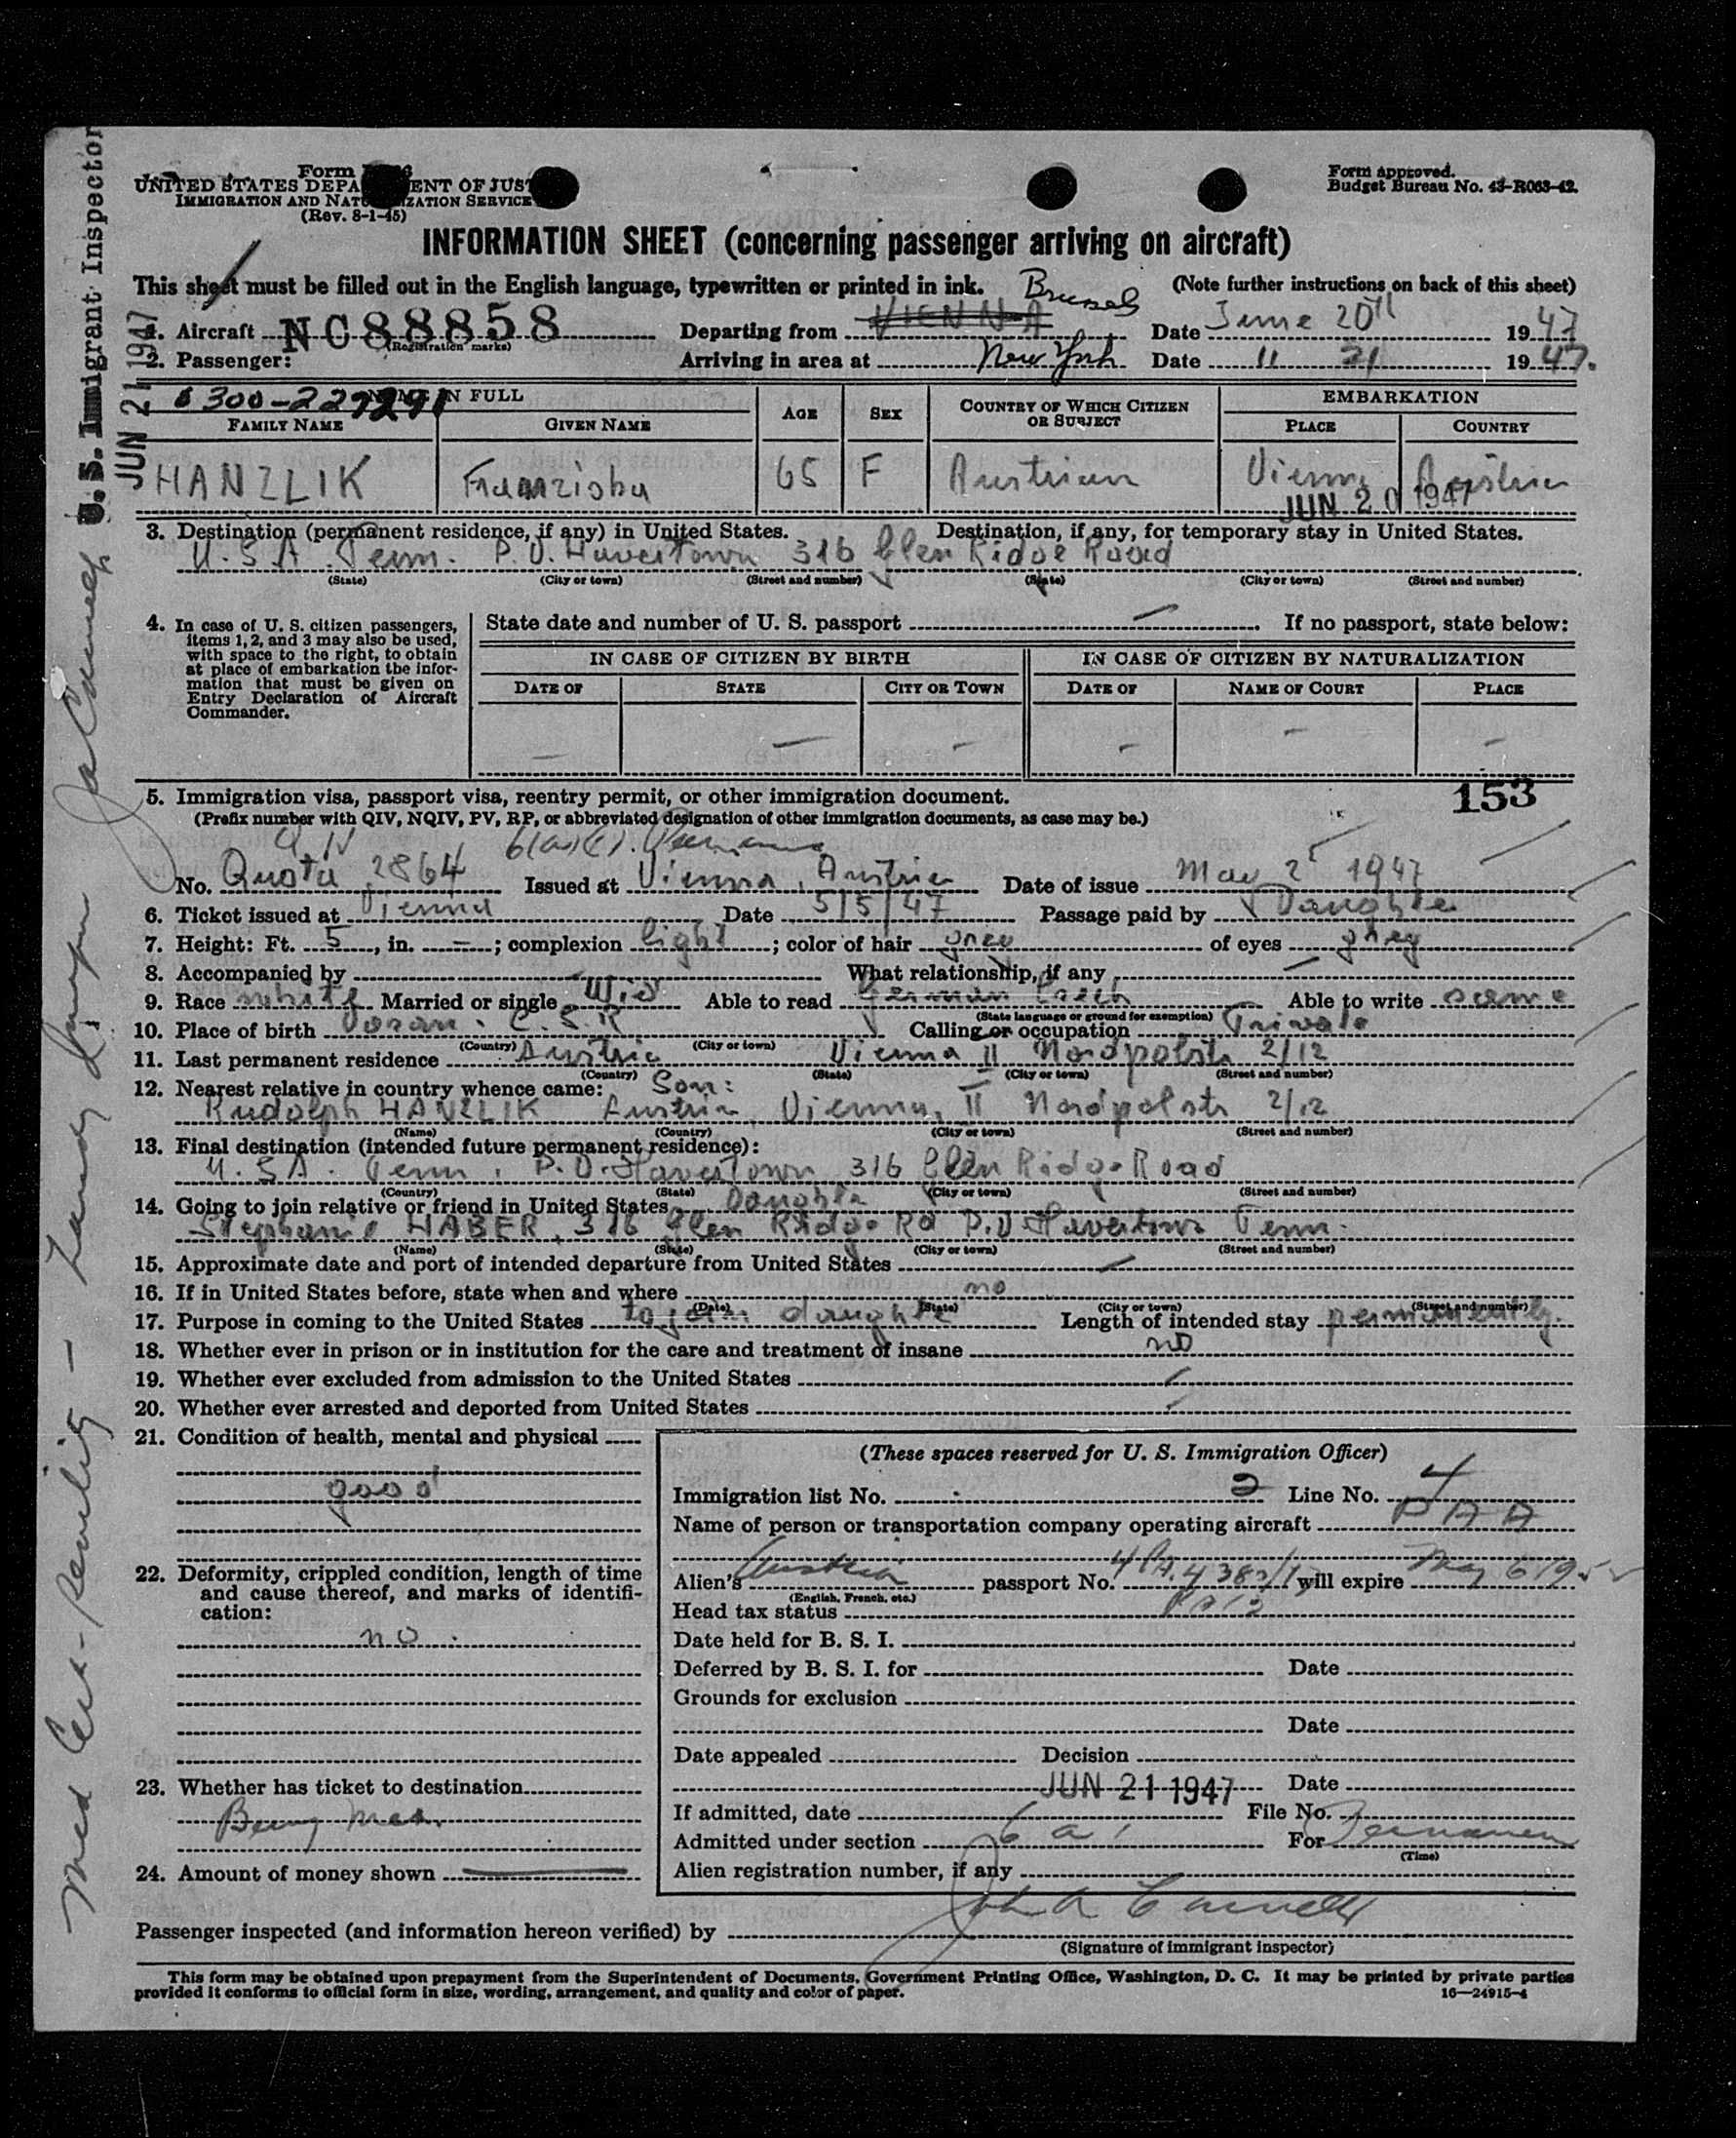 Form
UNITED STATES DEPA ENT OF JUST
IMMIGRATION AND NATU IZATION SERVICE
(Rev. 8-1-45)
Form approved.
Budget Bureau No. 43-R063-42.
INFORMATION SHEET (concerning passenger arriving on aircraft)
This sheet must be filled out in the English language, typewritten or printed in ink.
(Note further instructions on back of this sheet)
Brussels
1. Aircraft NC88858 Departing from VIENNA Date June 20th 1947
(Registration marks)
2. Passenger: Arriving in area at New York Date 11 21 1947.
NAME IN FULL AGE SEX COUNTRY OF WHICH CITIZEN OR SUBJECT EMBARKATION
FAMILY NAME GIVEN NAME PLACE COUNTRY
HANZLIK Franziska 65 F Austrian Vienna Austria
JUN 20 1947
3. Destination (permanent residence, if any) in United States. Destination, if any, for temporary stay in United States.
U.S.A. Penn. P.O. Havertown 316 Glen Ridge Road
(State) (City or town) (Street and number) (State) (City or town) (Street and number)
4. In case of U. S. citizen passengers, items 1, 2, and 3 may also be used, with space to the right, to obtain at place of embarkation the information that must be given on Entry Declaration of Aircraft Commander.
State date and number of U. S. passport — If no passport, state below:
IN CASE OF CITIZEN BY BIRTH IN CASE OF CITIZEN BY NATURALIZATION
DATE OF STATE CITY OR TOWN DATE OF NAME OF COURT PLACE
— — — — — —
153
5. Immigration visa, passport visa, reentry permit, or other immigration document.
(Prefix number with QIV, NQIV, PV, RP, or abbreviated designation of other immigration documents, as case may be.)
No. Quota 2864 Issued at Vienna, Austria Date of issue May 2 1947
6. Ticket issued at Vienna Date 5/5/47 Passage paid by Daughter
7. Height: Ft. 5, in. –; complexion light; color of hair grey of eyes grey
8. Accompanied by — What relationship, if any —
9. Race white Married or single Wid Able to read German Able to write same
(State language or ground for exemption)
10. Place of birth C.S.R. Calling or occupation Private
(Country) (City or town)
11. Last permanent residence Austria Vienna II Nordpolstr 2/12
(Country) (State) (City or town) (Street and number)
12. Nearest relative in country whence came: Son:
Rudolph HANZLIK Austria Vienna, II Nordpolstr 2/12
(Name) (Country) (City or town) (Street and number)
13. Final destination (intended future permanent residence):
U.S.A. Penn. P.O. Havertown 316 Glen Ridge Road
(Country) (State) (City or town) (Street and number)
14. Going to join relative or friend in United States Daughter
Stephanie HABER, 316 Glen Ridge Rd P.O. Havertown Penn.
(Name) (State) (City or town) (Street and number)
15. Approximate date and port of intended departure from United States —
16. If in United States before, state when and where no
(Date) (State) (City or town) (Street and number)
17. Purpose in coming to the United States to join daughter Length of intended stay permanently.
18. Whether ever in prison or in institution for the care and treatment of insane no
19. Whether ever excluded from admission to the United States
20. Whether ever arrested and deported from United States
21. Condition of health, mental and physical
good
22. Deformity, crippled condition, length of time and cause thereof, and marks of identification:
no.
23. Whether has ticket to destination
Being met.
24. Amount of money shown
(These spaces reserved for U. S. Immigration Officer)
Immigration list No. 2 Line No. 4
Name of person or transportation company operating aircraft PAA
Alien's Austrian passport No. will expire May 6 19
(English, French, etc.)
Head tax status Paid
Date held for B. S. I.
Deferred by B. S. I. for Date
Grounds for exclusion
Date
Date appealed Decision
Date
JUN 21 1947
If admitted, date File No.
Admitted under section 6 a 1 For Permanent
(Time)
Alien registration number, if any
Passenger inspected (and information hereon verified) by
(Signature of immigrant inspector)
This form may be obtained upon prepayment from the Superintendent of Documents, Government Printing Office, Washington, D. C. It may be printed by private parties
provided it conforms to official form in size, wording, arrangement, and quality and color of paper.
16—24915-4
U. S. Immigrant Inspector
JUN 21 1947
Med Cert - Senility -